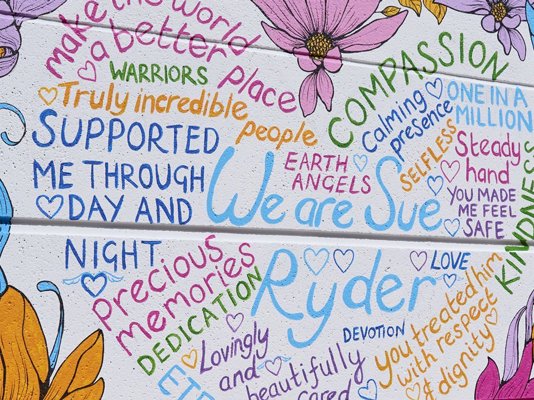 make the world
a better place
WARRIORS
Truly incredible
people
SUPPORTED
ME THROUGH
DAY AND
NIGHT
COMPASSION
Calming
presence
ONE IN A
MILLION
SELFLESS
Steady
hand
EARTH
ANGELS
YOU MADE
ME FEEL
SAFE
KINDNESS
We are Sue
Ryder
LOVE
Precious
memories
DEDICATION
DEVOTION
You treated him
with respect
& dignity
Lovingly
and
beautifully
cared